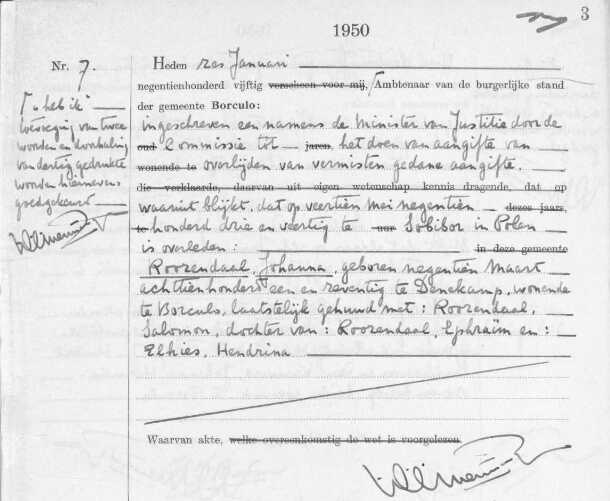 3
1950
Nr. 7.
Heden zes Januari
negentienhonderd vijftig verscheen voor mij, Ambtenaar van de burgerlijke stand
der gemeente Borculo:
"heb ik"
toevoeging van twee
woorden en doorhaling
van dertig gedrukte
woorden hiernevens
goedgekeurd.
ingeschreven een namens de Minister van Justitie door de
oud Commissie tot jaren, het doen van aangifte van
wonende te overlijden van vermisten gedane aangifte,
die verklaarde, daarvan uit eigen wetenschap kennis dragende, dat op
waaruit blijkt, dat op veertien mei negentien dezes jaars,
te honderd drie en veertig te uur Sobibor in Polen
is overleden: in deze gemeente
Roozendaal, Johanna, geboren negentien Maart
achttienhonderd een en zeventig te Denekamp, wonende
te Borculo, laatstelijk gehuwd met: Roozendaal,
Salomon, dochter van: Roozendaal, Ephraïm en:
Elkies, Hendrina
Waarvan akte, welke overeenkomstig de wet is voorgelezen.